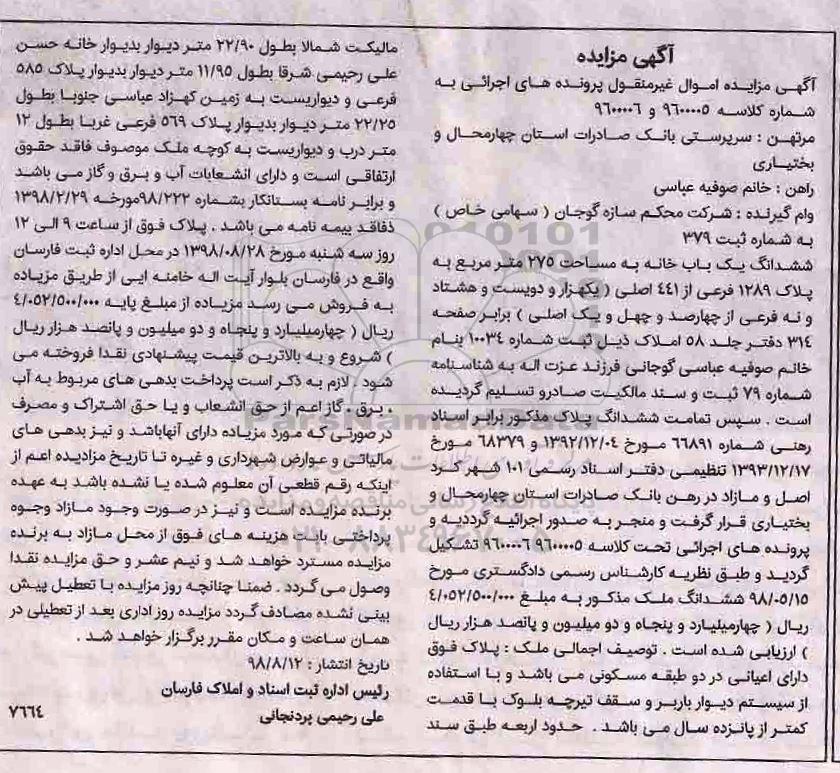 آگهی مزایده
آگهی مزایده اموال غیرمنقول پرونده های اجرائی به
شماره کلاسه ۹۶۰۰۰۰۵ و ۹۶۰۰۰۰۶
مرتهن : سرپرستی بانک صادرات استان چهارمحال و
بختیاری
راهن : خانم صوفیه عباسی
وام گیرنده : شرکت محکم سازه گوجان ( سهامی خاص )
به شماره ثبت ۳۷۹
ششدانگ یک باب خانه به مساحت ۲۷۵ متر مربع به
پلاک ۱۲۸۹ فرعی از ۴۴۱ اصلی ( یکهزار و دویست و هشتاد
و نه فرعی از چهارصد و چهل و یک اصلی ) برابر صفحه
۳۱۴ دفتر جلد ۵۸ املاک ذیل ثبت شماره ۱۰۰۳۴ بنام
خانم صوفیه عباسی گوجانی فرزند عزت اله به شناسنامه
شماره ۷۹ ثبت و سند مالکیت صادرو تسلیم گردیده
است . سپس تمامت ششدانگ پلاک مذکور برابر اسناد
رهنی شماره ۶۶۸۹۱ مورخ ۱۳۹۲/۱۲/۰۴ و ۶۸۳۷۹ مورخ
۱۳۹۳/۱۲/۱۷ تنظیمی دفتر اسناد رسمی ۱۰۱ شهر کرد
اصل و مازاد در رهن بانک صادرات استان چهارمحال و
بختیاری قرار گرفت و منجر به صدور اجرائیه گرددیه و
پرونده های اجرائی تحت کلاسه ۹۶۰۰۰۰۵ ۹۶۰۰۰۰۶ تشکیل
گردید و طبق نظریه کارشناس رسمی دادگستری مورخ
۹۸/۰۵/۱۵ ششدانگ ملک مذکور به مبلغ ۴/۰۵۲/۵۰۰/۰۰۰
ریال ( چهارمیلیارد و پنجاه و دو میلیون و پانصد هزار ریال
) ارزیابی شده است . توصیف اجمالی ملک : پلاک فوق
دارای اعیانی در دو طبقه مسکونی می باشد و با استفاده
از سیستم دیوار باربر و سقف تیرچه بلوک با قدمت
کمتر از پانزده سال می باشد . حدود اربعه طبق سند
مالیکت شمالا بطول ۲۲/۹۰ متر دیوار بدیوار خانه حسن
علی رحیمی شرقا بطول ۱۱/۹۵ متر دیوار بدیوار پلاک ۵۸۵
فرعی و دیواریست به زمین کهزاد عباسی جنوبا بطول
۲۲/۲۵ متر دیوار بدیوار پلاک ۵۶۹ فرعی غربا بطول ۱۲
متر درب و دیواریست به کوچه ملک موصوف فاقد حقوق
ارتفاقی است و دارای انشعابات آب و برق و گاز می باشد
و برابر نامه بستانکار بشماره ۹۸/۲۲۲مورخه ۱۳۹۸/۲/۲۹
ذفاقد بیمه نامه می باشد . پلاک فوق از ساعت ۹ الی ۱۲
روز سه شنبه مورخ ۱۳۹۸/۰۸/۲۸ در محل اداره ثبت فارسان
واقع در فارسان بلوار آیت اله خامنه ایی از طریق مزیاده
به فروش می رسد مزیاده از مبلغ پایه ۴/۰۵۲/۵۰۰/۰۰۰
ریال ( چهارمیلیارد و پنجاه و دو میلیون و پانصد هزار ریال
) شروع و به بالاترین قیمت پیشنهادی نقدا فروخته می
شود . لازم به ذکر است پرداخت بدهی های مربوط به آب
، برق ، گاز اعم از حق انشعاب و یا حق اشتراک و مصرف
در صورتی که مورد مزیاده دارای آنهاباشد و نیز بدهی های
مالیاتی و عوارض شهرداری و غیره تا تاریخ مزادیده اعم از
اینکه رقم قطعی آن معلوم شده یا نشده باشد به عهده
برنده مزایده است و نیز در صورت وجود مازاد وجوه
پرداختی بابت هزینه های فوق از محل مازاد به برنده
مزایده مسترد خواهد شد و نیم عشر و حق مزایده نقدا
وصول می گردد . ضمنا چنانچه روز مزایده با تعطیل پیش
بینی نشده مصادف گردد مزایده روز اداری بعد از تعطیلی در
همان ساعت و مکان مقرر برگزار خواهد شد .
تاریخ انتشار : ۹۸/۸/۱۲
رئیس اداره ثبت اسناد و املاک فارسان
علی رحیمی پردنجانی
۷۶۶۴